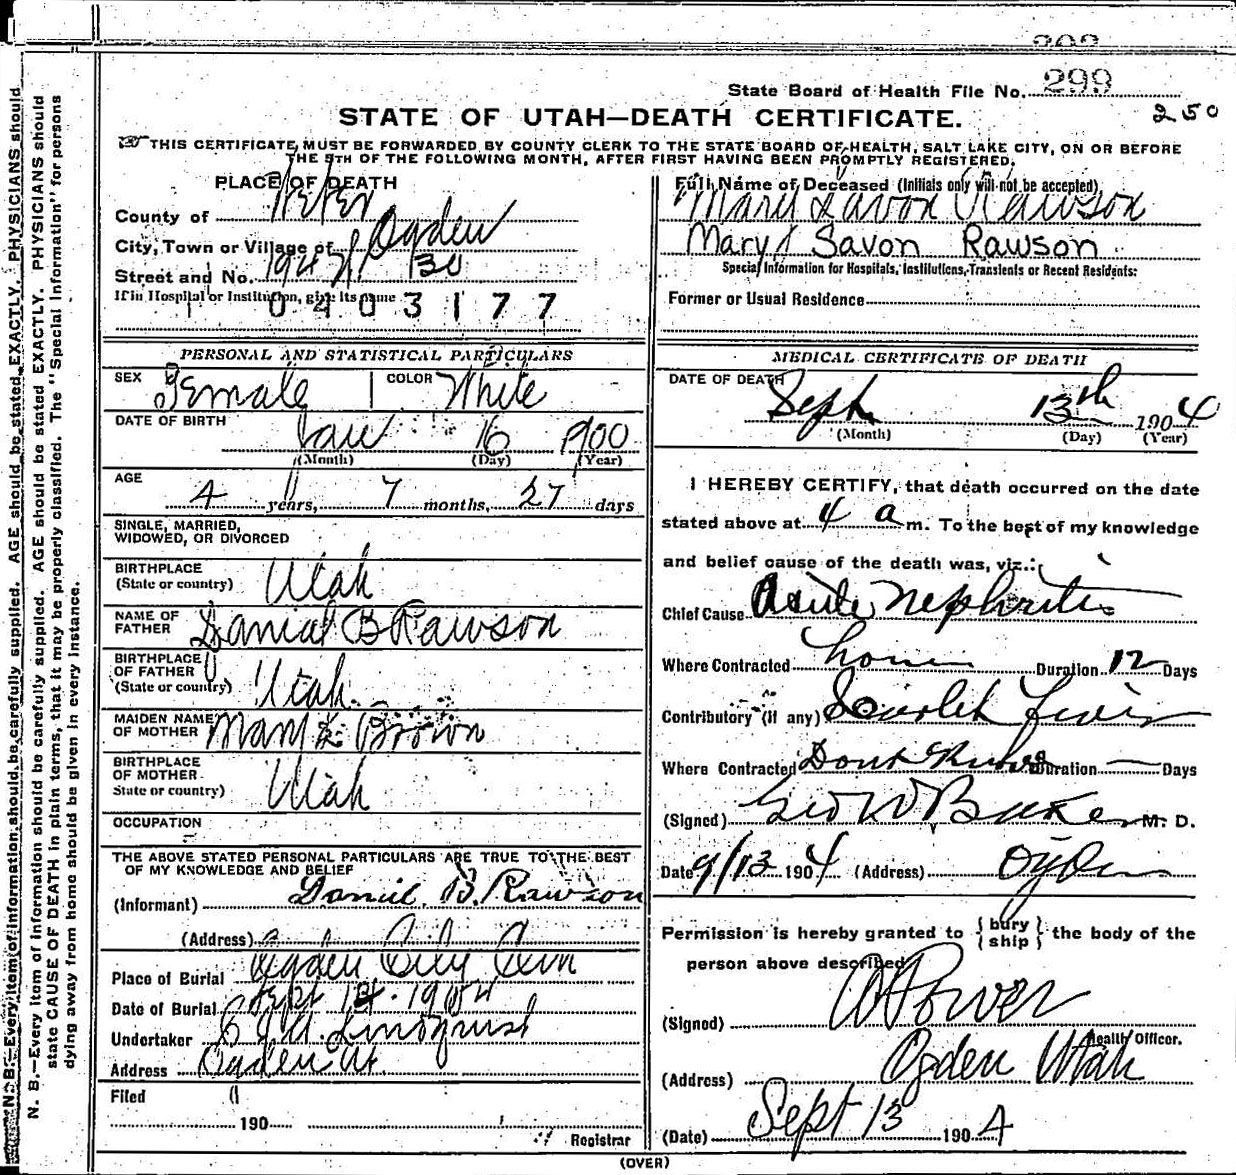 299
State Board of Health File No. 299
250
STATE OF UTAH—DEATH CERTIFICATE.
THIS CERTIFICATE MUST BE FORWARDED BY COUNTY CLERK TO THE STATE BOARD OF HEALTH, SALT LAKE CITY, ON OR BEFORE
THE 5TH OF THE FOLLOWING MONTH, AFTER FIRST HAVING BEEN PROMPTLY REGISTERED.
PLACE OF DEATH
County of Weber
City, Town or Village of Ogden
Street and No.
If in Hospital or Institution, give its name
0403177
PERSONAL AND STATISTICAL PARTICULARS
SEX Female COLOR White
DATE OF BIRTH Jan 16 1900
(Month) (Day) (Year)
AGE
4 years, 7 months, 27 days
SINGLE, MARRIED,
WIDOWED, OR DIVORCED
BIRTHPLACE
(State or country) Utah
NAME OF
FATHER Danial B Rawson
BIRTHPLACE
OF FATHER
(State or country) Utah
MAIDEN NAME
OF MOTHER Mary E. Brown
BIRTHPLACE
OF MOTHER
State or country) Utah
OCCUPATION
THE ABOVE STATED PERSONAL PARTICULARS ARE TRUE TO THE BEST
OF MY KNOWLEDGE AND BELIEF
(Informant) Daniel B. Rawson
(Address)
Place of Burial Ogden City Cem
Date of Burial Sept 1904
Undertaker Lindquist
Address Ogden Ut.
Filed
190
Registrar
Full Name of Deceased (Initials only will not be accepted)
Mary Lavon Rawson
Mary Savon Rawson
Special Information for Hospitals, Institutions, Transients or Recent Residents:
Former or Usual Residence
MEDICAL CERTIFICATE OF DEATH
DATE OF DEATH
Sept 13th 1904
(Month) (Day) (Year)
I HEREBY CERTIFY, that death occurred on the date
stated above at 4 a m. To the best of my knowledge
and belief cause of the death was, viz.:
Chief Cause Acute Nephritis
Where Contracted home Duration 12 Days
Contributory (if any) Scarlet Fever
Where Contracted Dont Know Duration — Days
(Signed) Geo W Baker M. D.
Date 9/13 1904 (Address) Ogden
Permission is hereby granted to { bury
ship } the body of the
person above described
(Signed) Power
Health Officer.
(Address) Ogden Utah
(Date) Sept 13 1904
(OVER)
N. B.—Every item of information should be carefully supplied. AGE should be stated EXACTLY. PHYSICIANS should
N. B.—Every item of information should be carefully supplied. AGE should be stated EXACTLY. PHYSICIANS should
state CAUSE OF DEATH in plain terms, that it may be properly classified. The "Special Information" for persons
dying away from home should be given in every instance.